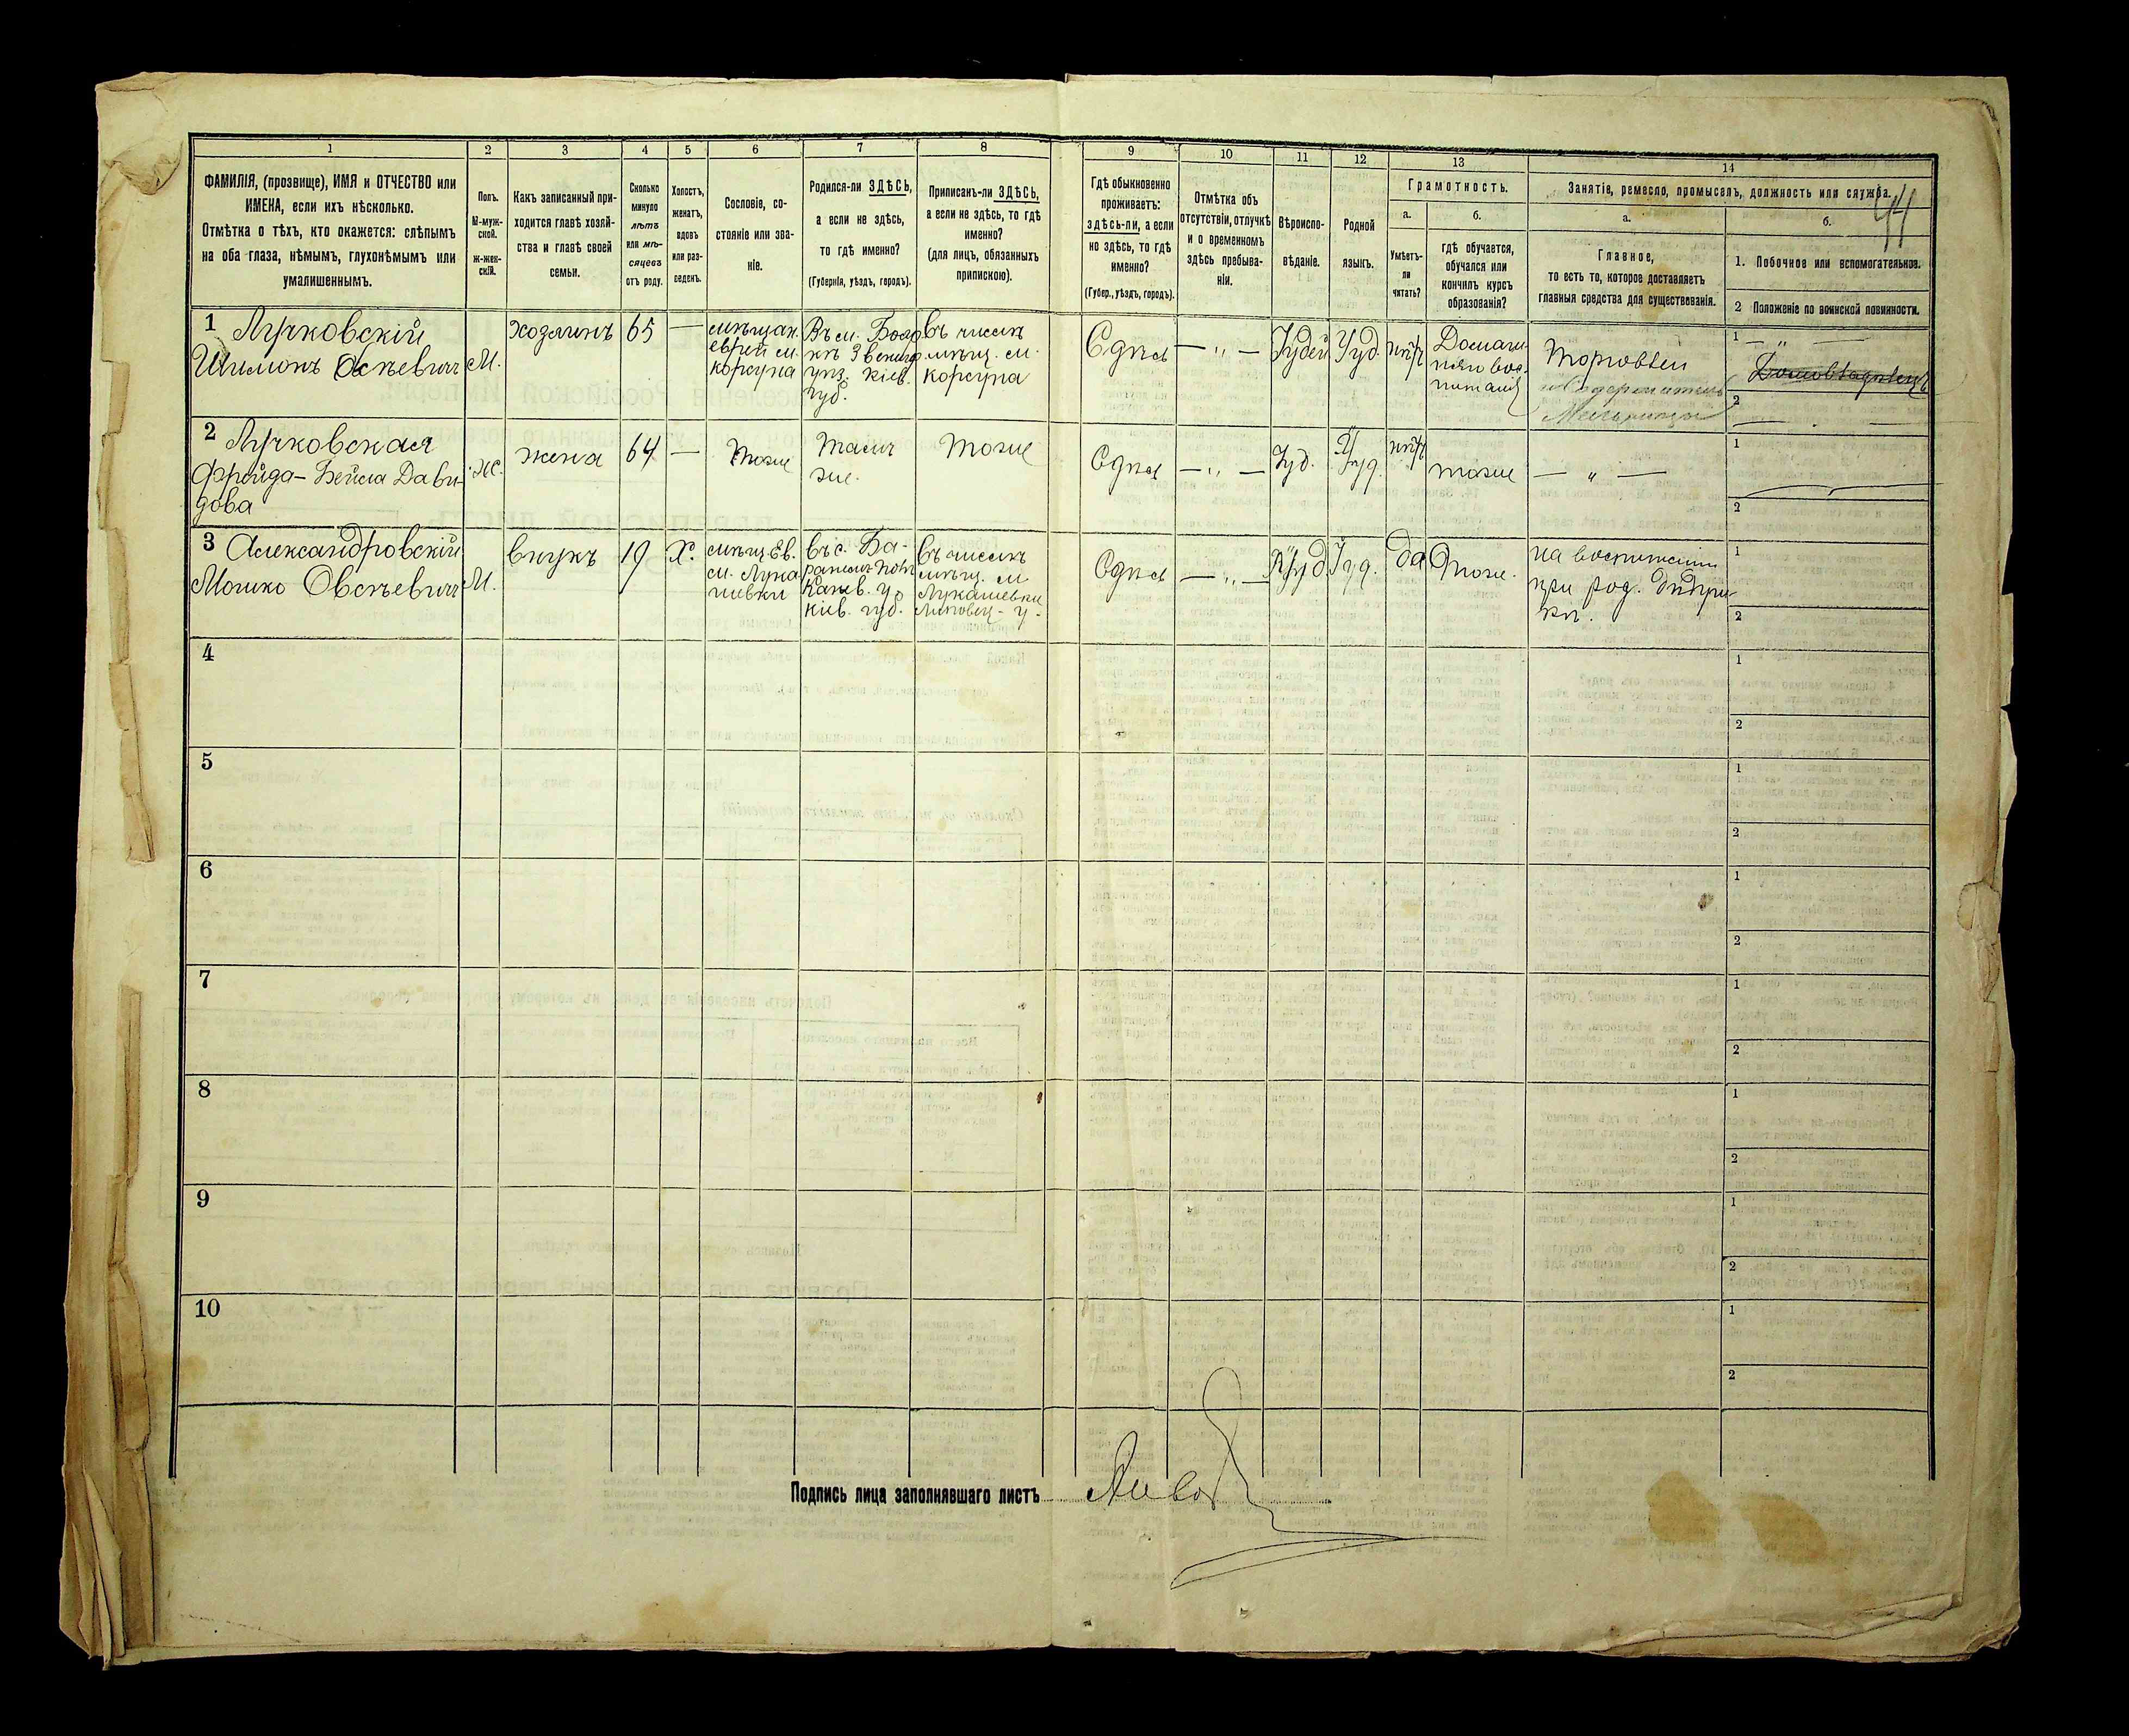 1
2
3
4
5
6
7
8
9
10
11
12
13
14
ФАМИЛІЯ, (прозвище), ИМЯ и ОТЧЕСТВО или
ИМЕНА, если ихъ нѣсколько.
Отмѣтка о тѣхъ, кто окажется: слѣпымъ
на оба глаза, нѣмымъ, глухонѣмымъ или
умалишеннымъ.
Полъ.
М-муж-
ской.
ж-жен-
скій.
Какъ записанный при-
ходится главѣ хозяй-
ства и главѣ своей
семьи.
Сколько
минуло
лѣтъ
или мѣ-
сяцевъ
отъ роду.
Холостъ,
женатъ,
вдовъ
или раз-
веденъ.
Сословіе, со-
стояніе или зва-
ніе.
Родился-ли ЗДѢСЬ,
а если не здѣсь,
то гдѣ именно?
(Губернія, уѣздъ, городъ).
Приписанъ-ли ЗДѢСЬ,
а если не здѣсь, то гдѣ
именно?
(для лицъ, обязанныхъ
припискою).
Гдѣ обыкновенно
проживаетъ:
здѣсь-ли, а если
не здѣсь, то гдѣ
именно?
(Губер., уѣздъ, городъ).
Отмѣтка объ
отсутствіи, отлучкѣ
и о временномъ
здѣсь пребыва-
ніи.
Вѣроиспо-
вѣданіе.
Родной
языкъ.
Грамотность.
а.
Умѣетъ-
ли
читать?
б.
гдѣ обучается,
обучался или
кончилъ курсъ
образованія?
Занятіе, ремесло, промыселъ, должность или служба.
44
а.
Главное,
то есть то, которое доставляетъ
главныя средства для существованія.
б.
1. Побочное или вспомогательное.
2 Положеніе по воинской повинности.
1 Лучковскій
Шимонъ Осѣевичъ
М.
хозяинъ
65
—
мѣщан.
еврей м.
корсуна
Въ м. Бояр
кѣ Звениго
уѣз. Кіев.
губ.
въ числѣ
мѣщ. м.
Корсуна
Здѣсь
— „ —
Іудей
Іуд.
Домаш
Торговецъ
Мельницы
1 — „ —
Домовладѣлецъ
2
2 Лучковская
Фрейда-Бейла Дави-
дова
Ж.
жена
64
—
тоже
тамъ
же.
тоже
Здѣсь
— „ —
Іуд.
Іуд.
тоже
— „ —
1
2
3 Александровскій
Мошко Овсѣевичъ
М.
внукъ
19
Х.
мѣщ. Ев.
м. Лука
шевки
въ с. Ба-
Канев. у.
Кіев. губ.
въ числѣ
мѣщ. м
Лукашевки
Липовец. у.
Здѣсь
— „ —
Іуд.
Іуд.
да
тоже.
на воспитаніи
при род.
1
2
4
1
2
5
1
2
6
1
2
7
1
2
8
1
2
9
1
2
10
1
2
Подпись лица заполнявшаго листъ